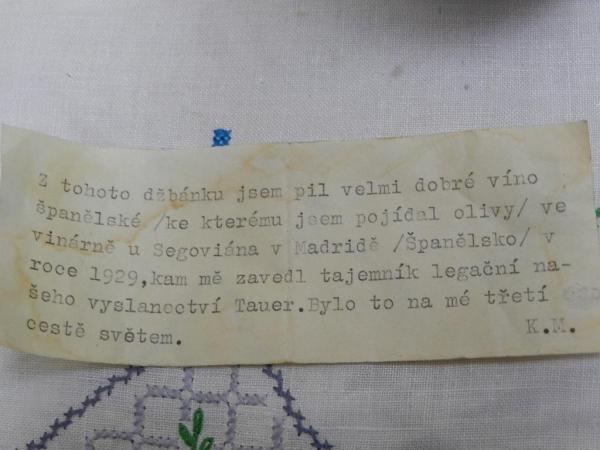 Z tohoto džbánku jsem pil velmi dobré víno
španělské /ke kterému jsem pojídal olivy/ ve
vinárně u Segoviána v Madridě /Španělsko/ v
roce 1929,kam mě zavedl tajemník legační na-
šeho vyslanectví Tauer.Bylo to na mé třetí
cestě světem. K.M.